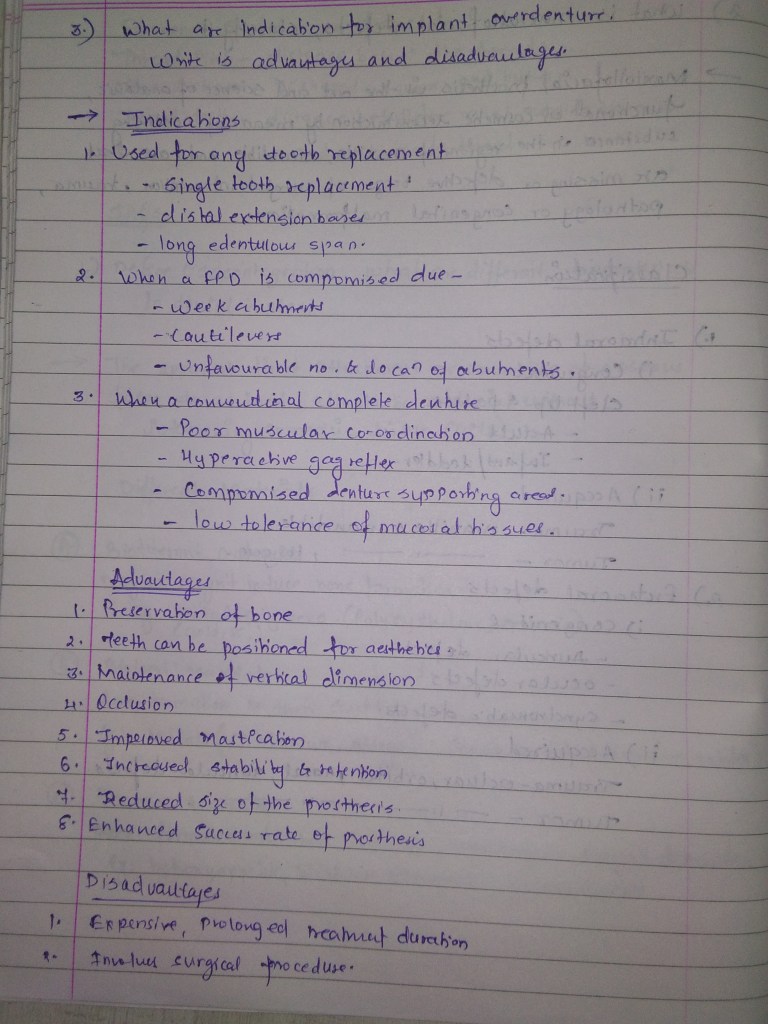 3.) What are Indication for implant overdenture.
Write is advantages and disadvantages.
→ Indications
1. Used for any tooth replacement
- single tooth replacement
- distal extension bases
- long edentulous span.
2. When a FPD is compromised due -
- Week abutments
- Cantilevers
- Unfavourable no. & locan of abuments.
3. When a convendinal complete denture
- Poor muscular co-ordination
- Hyperactive gag reflex
- Compromised denture supporting areas.
- low tolerance of mucosal tissues.
Advantages
1. Preservation of bone
2. Teeth can be positioned for aesthetics.
3. Maintenance of vertical dimension
4. Occlusion
5. Improved mastication
6. Increased stability & retention
7. Reduced size of the prosthesis.
8. Enhanced success rate of prosthesis
Disadvantages
1. Expensive, prolonged treatment duration
2. Involves surgical procedure.